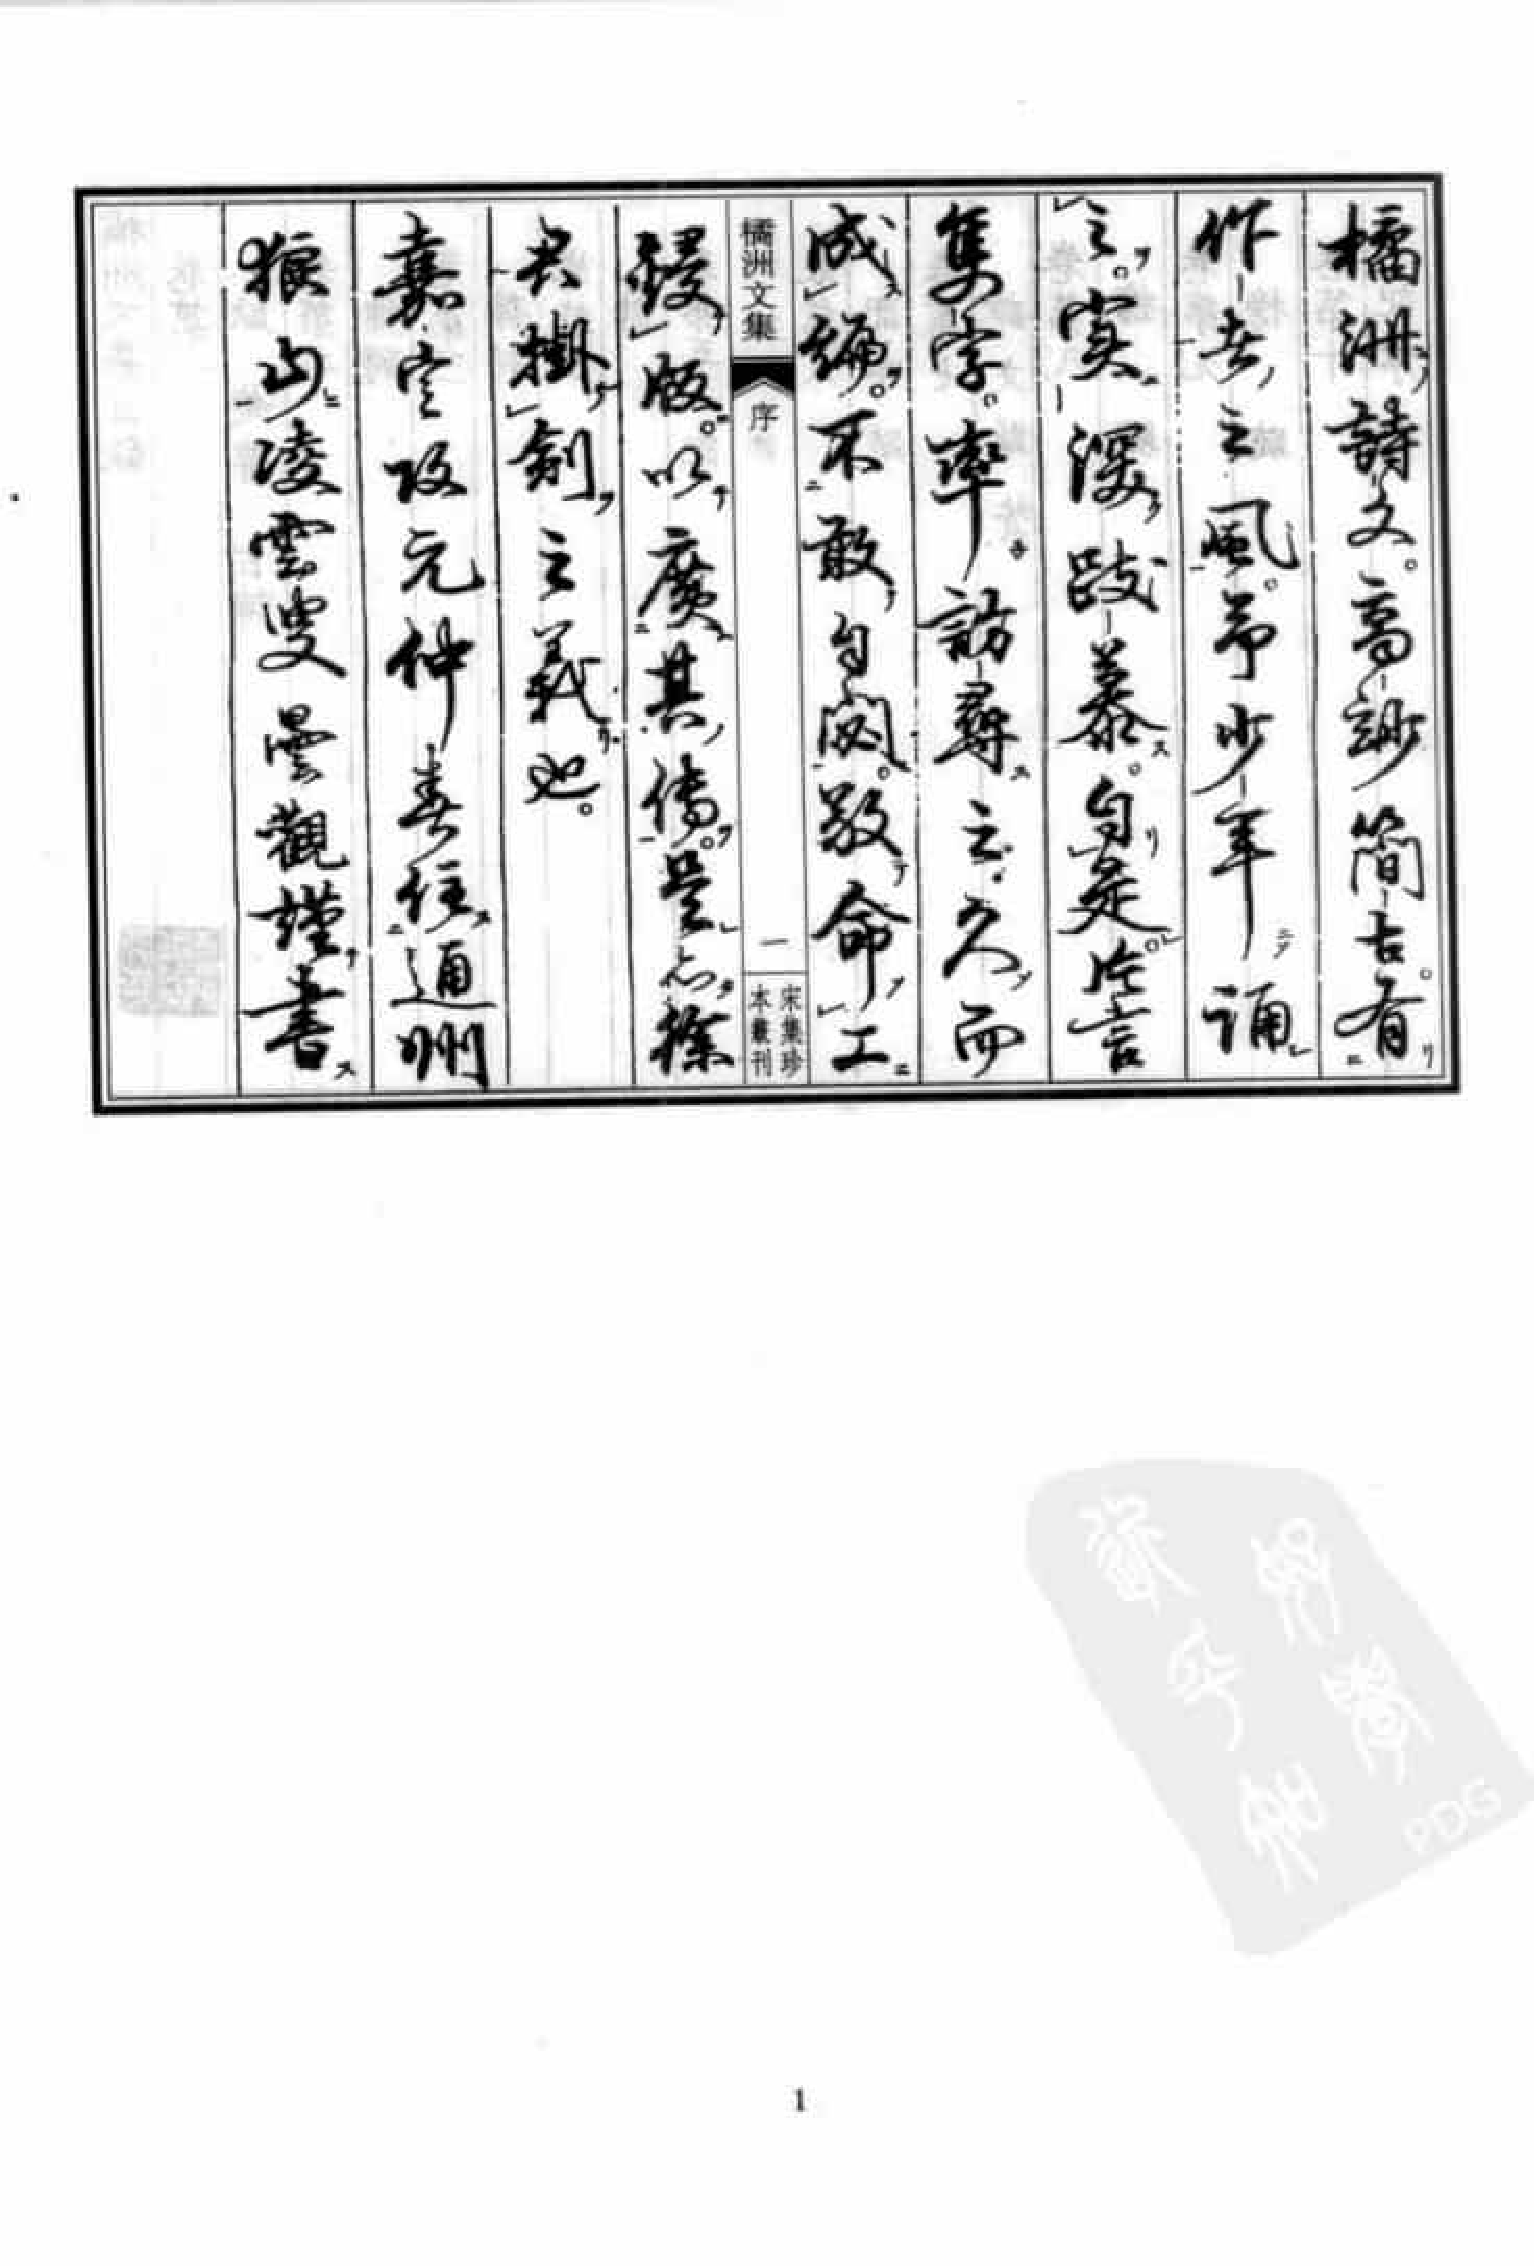 橘洲詩文高妙簡古有
作者之風予少年誦
之実深歆慕自是片言
隻字率訪尋之久而
成編不敢自閟敬命工
鋟版以廣其傳是亦徐
君掛劍之義也
嘉定改元仲春住通州
狼山凌雲叟曇觀謹書
橘洲文集
序
一
宋集珍
本叢刊
1
PDG